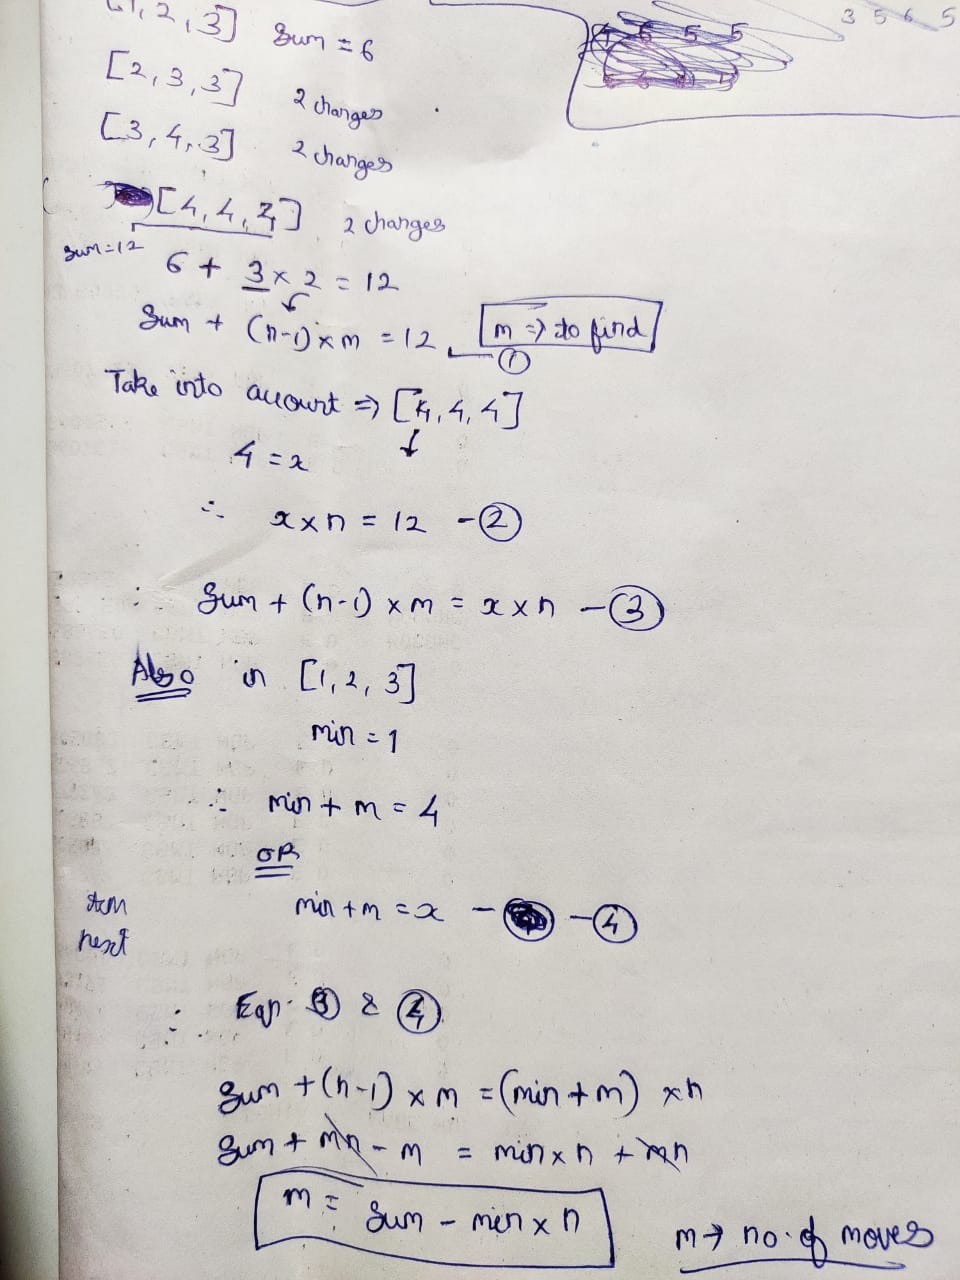 [1, 2, 3] Sum = 6
3 5 6 5
5 5
[2, 3, 3] 2 changes
[3, 4, 3] 2 changes
[4, 4, 4] 2 changes
Sum=12
6 + 3 x 2 = 12
Sum + (n-1) x m = 12 - ①
m => to find
Take into account => [4, 4, 4]
4 = x
∴ x x n = 12 - ②
∴ Sum + (n-1) x m = x x n - ③
Also in [1, 2, 3]
min = 1
∴ min + m = 4
OR
min + m = x - - ④
next
∴ Eqn. ③ & ④
Sum + (n-1) x m = (min + m) x n
Sum + mn - m = min x n + mn
m = Sum - min x n
m → no. of moves